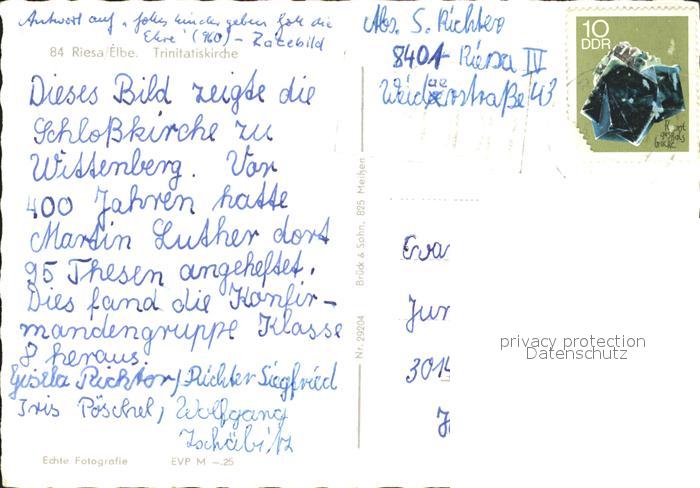 Antwort auf „ Kinder geben Gott die
Ehre" (960) – Rätselbild
84 Riesa/Elbe. Trinitatiskirche
Dieses Bild zeigte die
Schloßkirche zu
Wittenberg. Vor
400 Jahren hatte
Martin Luther dort
95 Thesen angeheftet.
Dies fand die Konfir-
mandengruppe Klasse
8 heraus.
Gisela Richter, Richter Siegfried
Iris Pöschel, Wolfgang
Zschäbitz
Echte Fotografie EVP M –.25
Nr. 29204 Brück & Sohn, 825 Meißen
Abs. S. Richter
8401 Riesa IV
43
10
DDR
Evan
Jun
301
privacy protection
Datenschutz